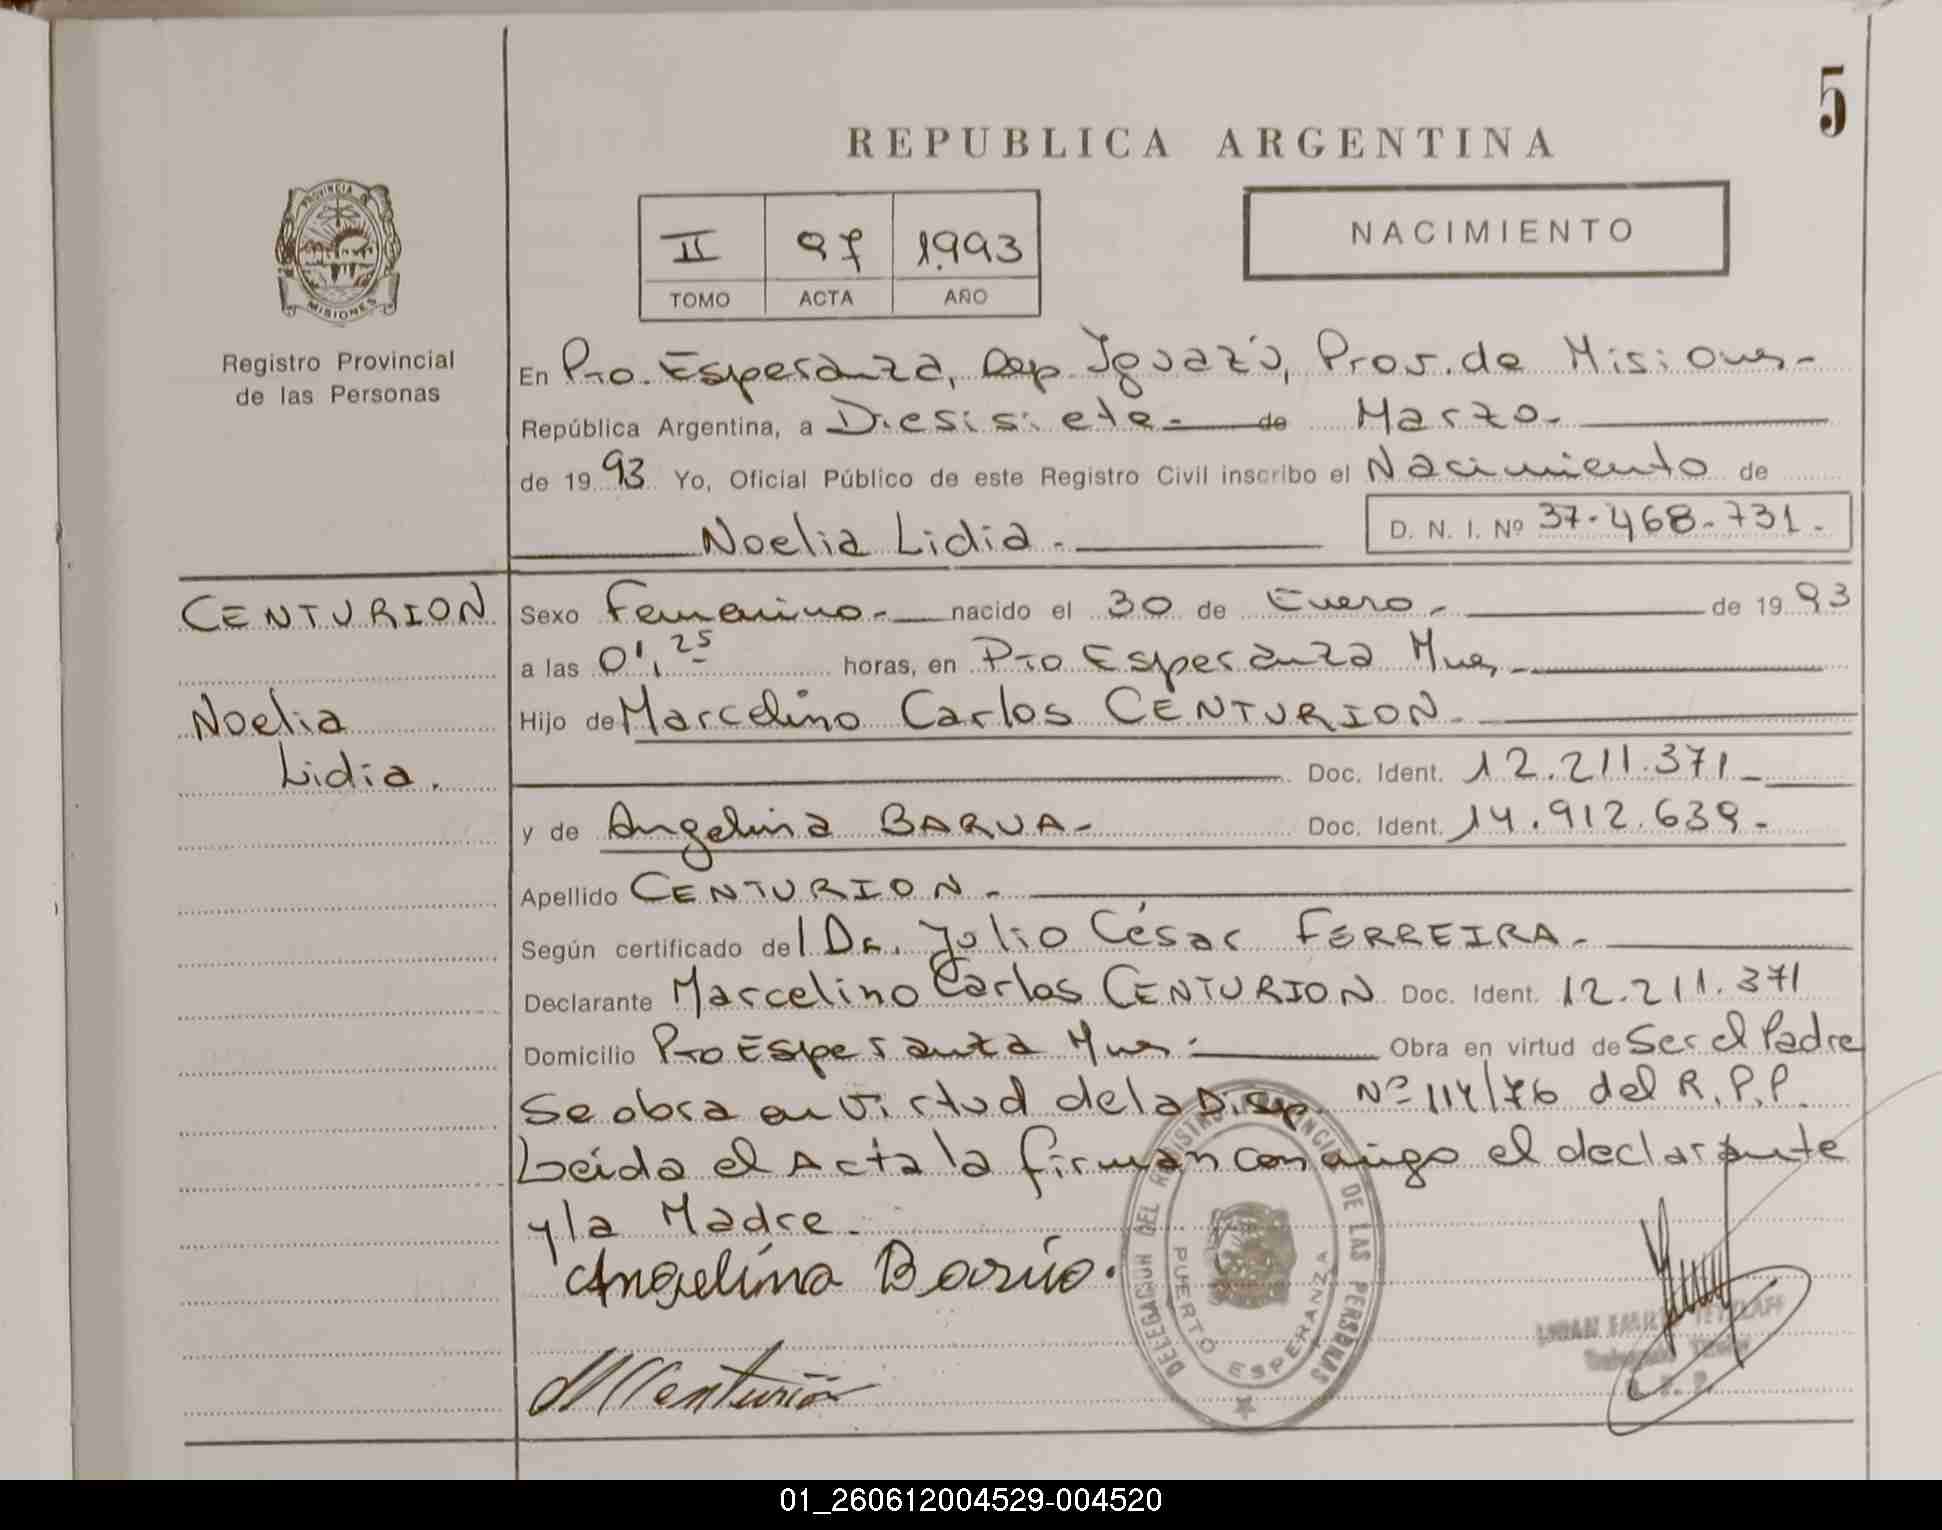 5
REPUBLICA ARGENTINA
PROVINCIA DE
MISIONES
Registro Provincial
de las Personas
II 97 1993
TOMO ACTA AÑO
NACIMIENTO
En Pto. Esperanza, Dep. Iguazú, Prov. de Misiones-
República Argentina, a Diesisiete- de Marzo-
de 19 93 Yo, Oficial Público de este Registro Civil inscribo el Nacimiento de
Noelia Lidia.- D. N. I. Nº 37-468-731-
CENTURION
Noelia
Lidia.
Sexo Femenino- nacido el 30 de Enero- de 19 93
a las 01,25 horas, en Pto Esperanza Mnes-
Hijo de Marcelino Carlos CENTURION-
Doc. Ident. 12.211.371-
y de Angelina BARUA- Doc. Ident. 14.912.639-
Apellido CENTURION-
Según certificado del Dr. Julio César FERREIRA-
Declarante Marcelino Carlos CENTURION Doc. Ident. 12.211.371
Domicilio Pto Esperanza Mnes- Obra en virtud de Ser el Padre
Se obra en virtud de la Disp. Nº 114/76 del R.P.P.
Leida el Acta la firman conmigo el declarante
y la Madre.
Angelina Barúa.
DELEGACION DEL REGISTRO PROVINCIAL DE LAS PERSONAS
PUERTO ESPERANZA
MCenturión
R. P. P.
01_260612004529-004520